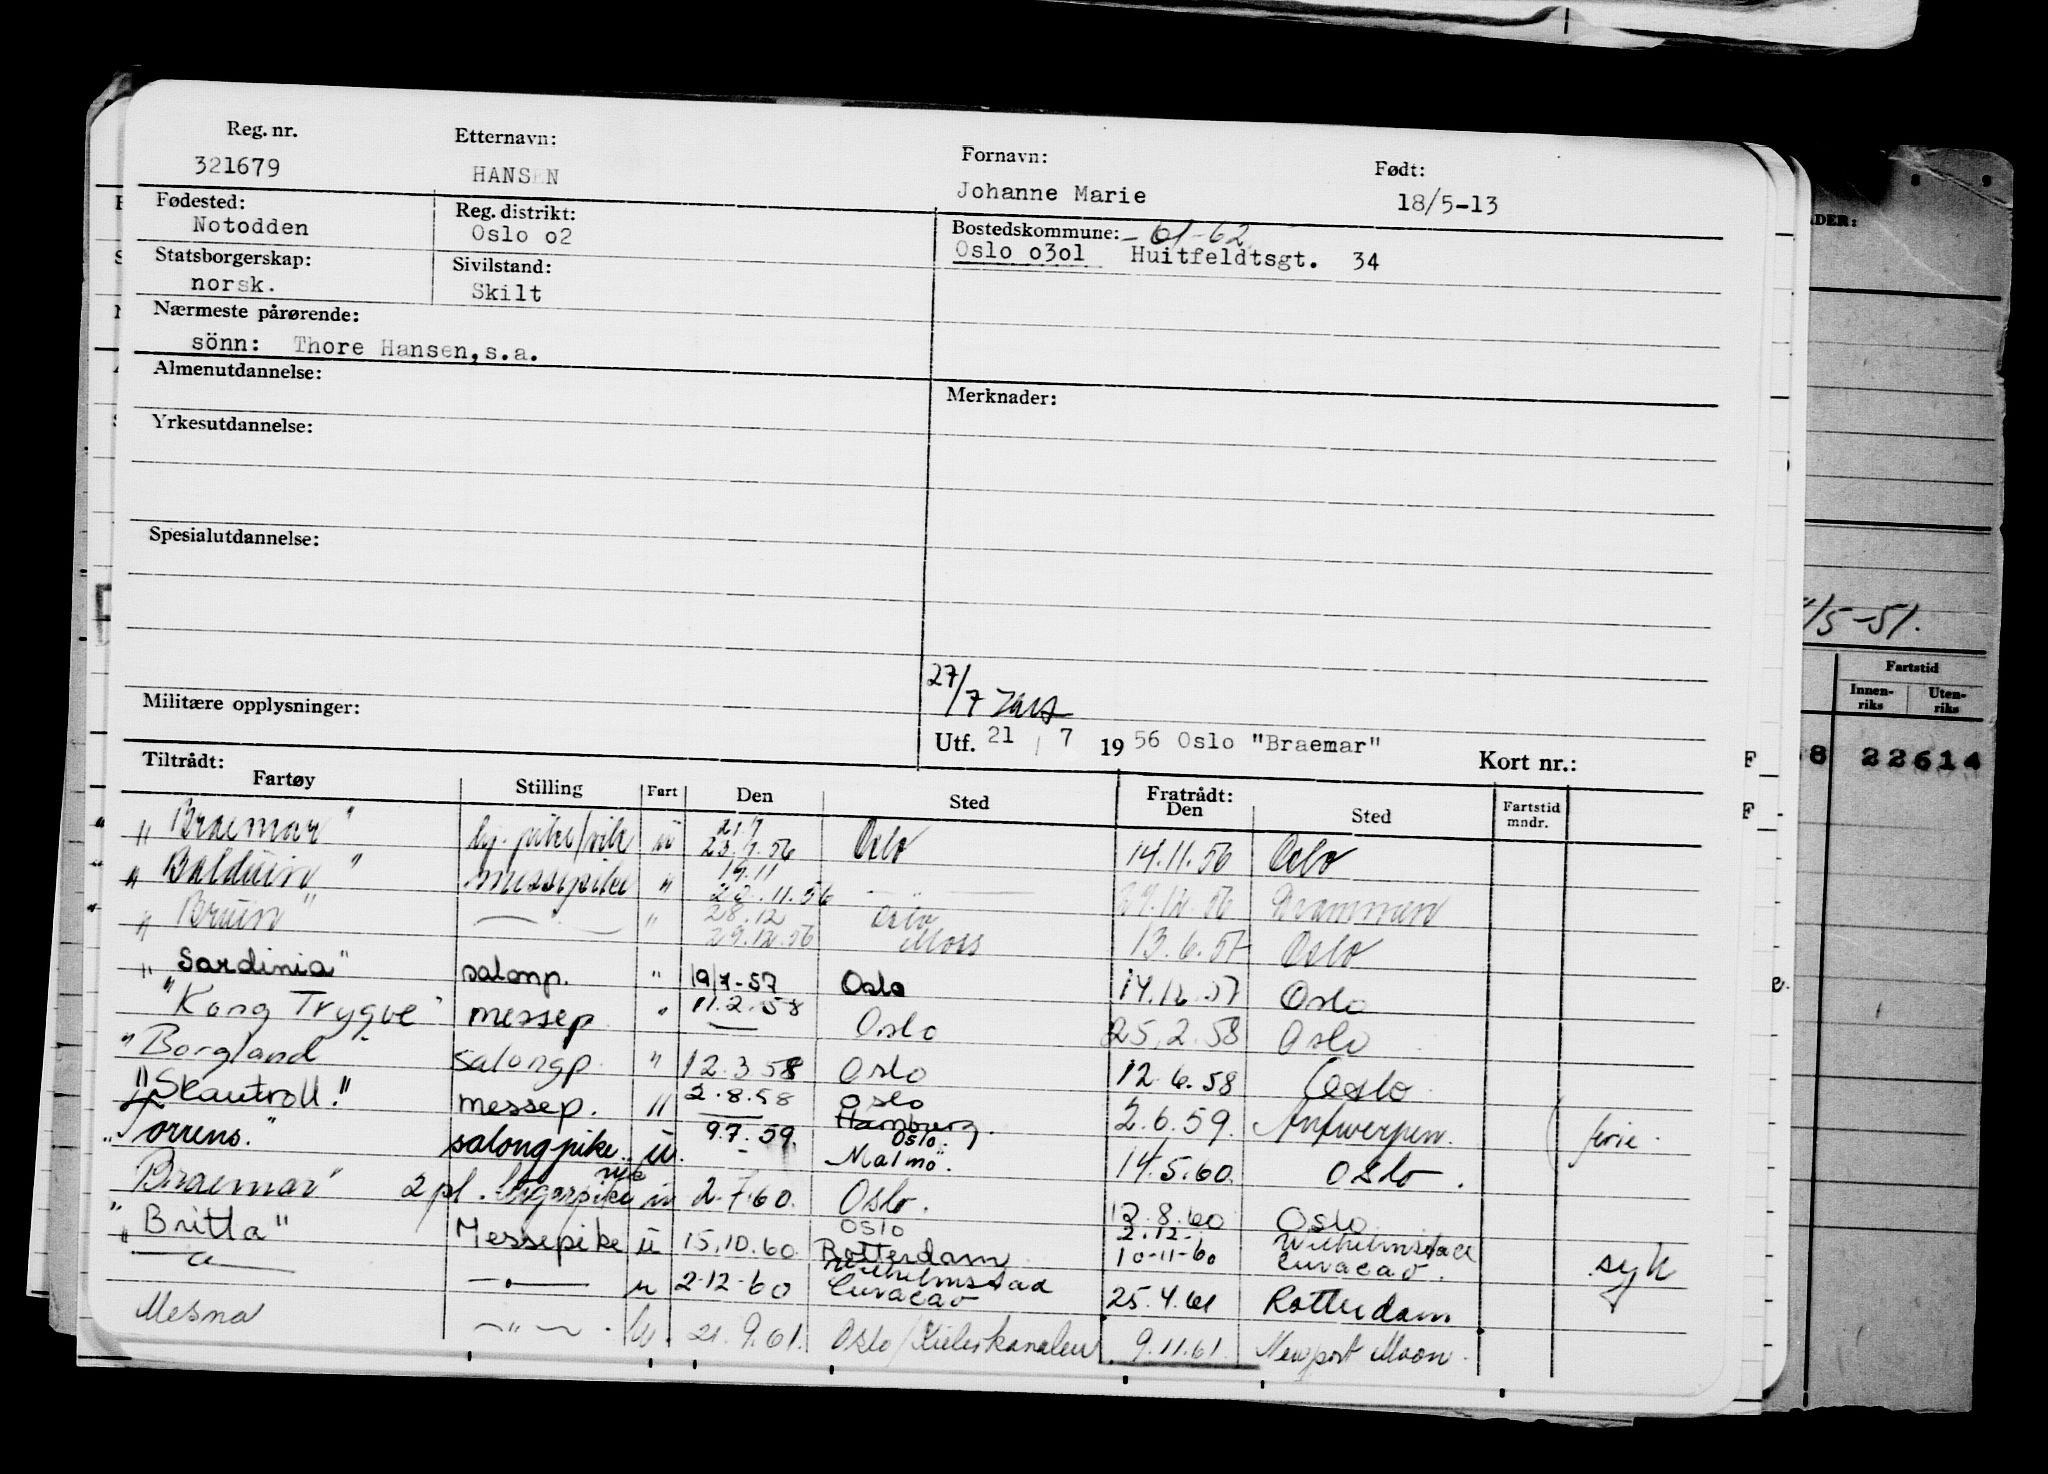 Reg. nr. Etternavn: Fornavn: Født:
321679 HANSEN Johanne Marie 18/5-13
Fødested: Reg. distrikt: Bostedskommune: - 61-62
Notodden Oslo o2 Oslo o3o1 Huitfeldtsgt. 34
Statsborgerskap: Sivilstand:
norsk. Skilt
Nærmeste pårørende:
sönn: Thore Hansen,s.a.
Almenutdannelse: Merknader:
Yrkesutdannelse:
Spesialutdannelse:
27/7
Militære opplysninger: Utf. 21 / 7 1956 Oslo "Braemar" Kort nr.:
Tiltrådt: Fratrådt:
Fartøy Stilling Fart Den Sted Den Sted Fartstid mndr.
21.7
" Braemar " u 23.7.56 Oslo 14.11.56 Oslo
19.11
" Balduin " messepike " 20.11.56 29.12.56 Drammen
28.12 Oslo
" Bruin " " 29.12.56 Moss 13.6.57 Oslo
" Sardinia" salonp. " 19/7-57 Oslo 14.12.57 Oslo
11.2.58
"Kong Trygve" messep " — Oslo 25.2.58 Oslo
"Borgland salongp. " 12.3.58 Oslo 12.6.58 Oslo
2.8.58 Oslo
"Skautroll." messep. " — Hamburg. 2.6.59. Antwerpen. ferie.
9.7.59. Oslo.
"Torrens." salongpike u. Malmö. 14.5.60. Oslo.
Braemar" 2 pl. in 2.7.60. Oslo. 12.8.60 Oslo
Oslo 2.12- Wilhelmstad
"Britta" Messepike u 15.10.60 Rotterdam 10-11-60 Curacao. syk
Wilhelmstad
" — " — — " — u 2-12-60 Curacao 25.4.61 Rotterdam
Mesna — " — . 21.9.61. Oslo/Kielerkanalen 9.11.61. Newport Moon.
DER:
/5-51.
Fartstid
Innen-riks Uten-riks
8 22614